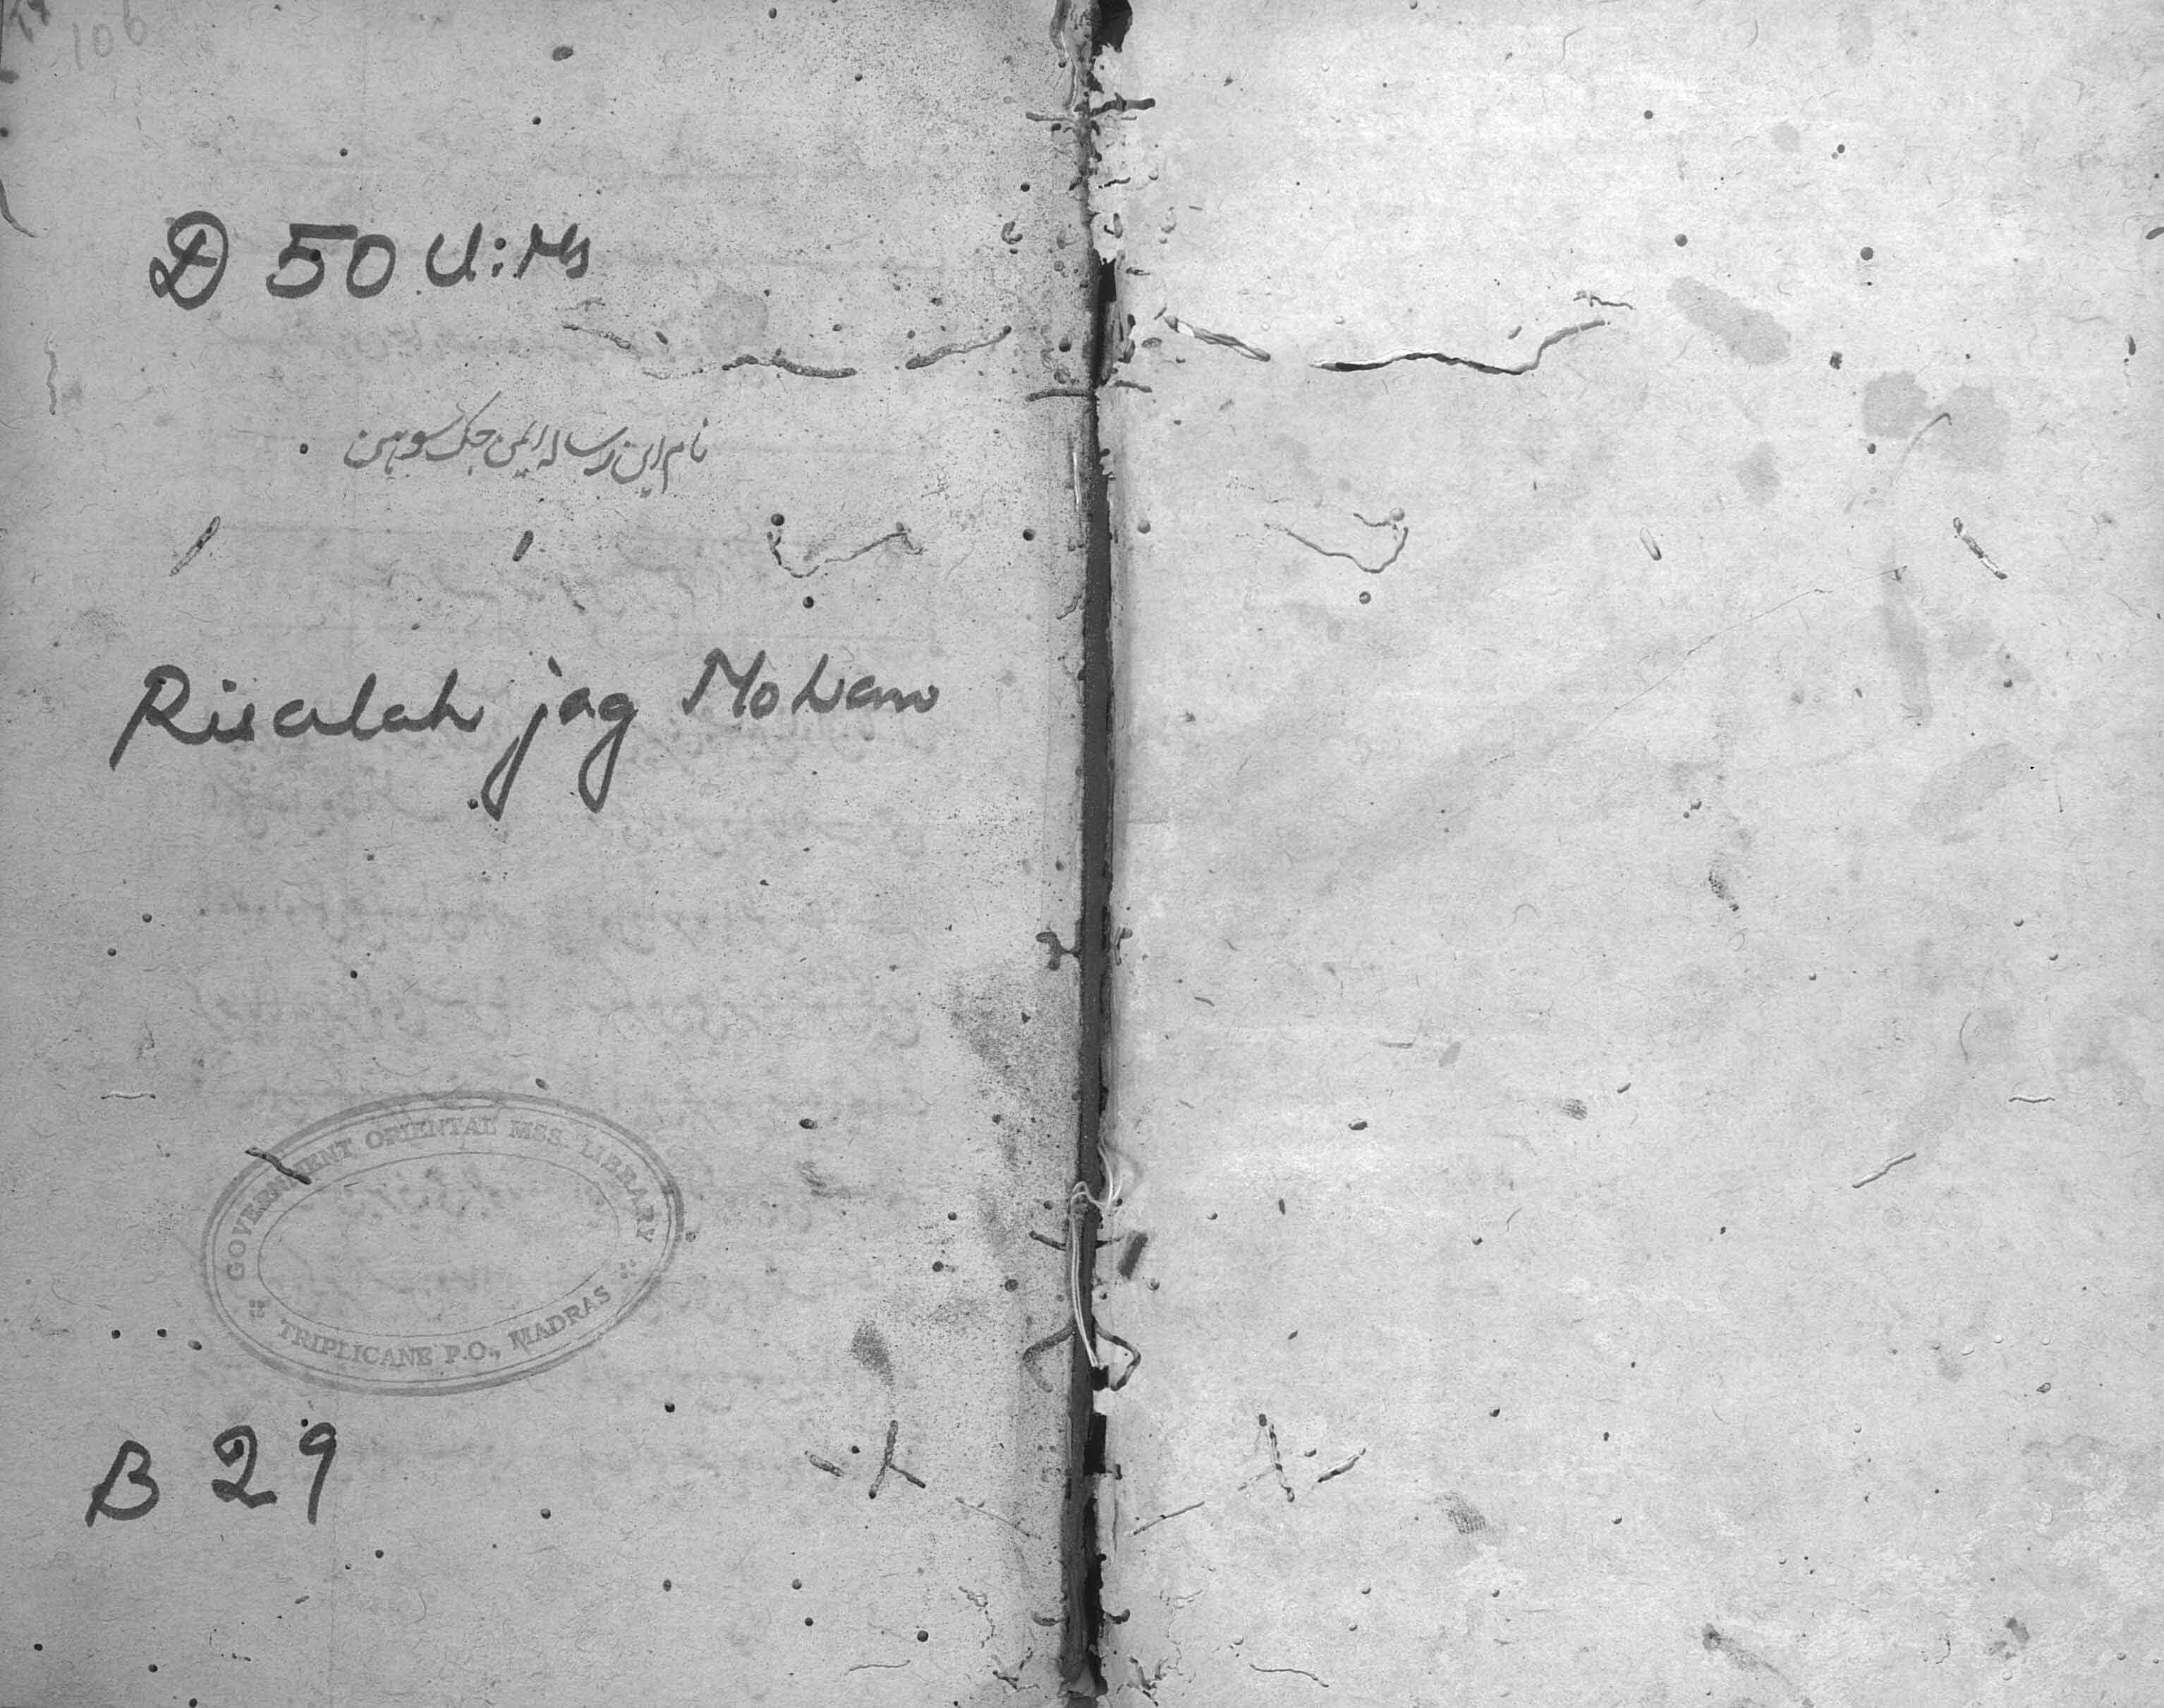 106
D 50 U: Ms
نام این رساله من جک سوہن
Risalah jag Mohan
GOVERNMENT ORIENTAL MSS. LIBRARY
TRIPLICANE P.O., MADRAS
B 29